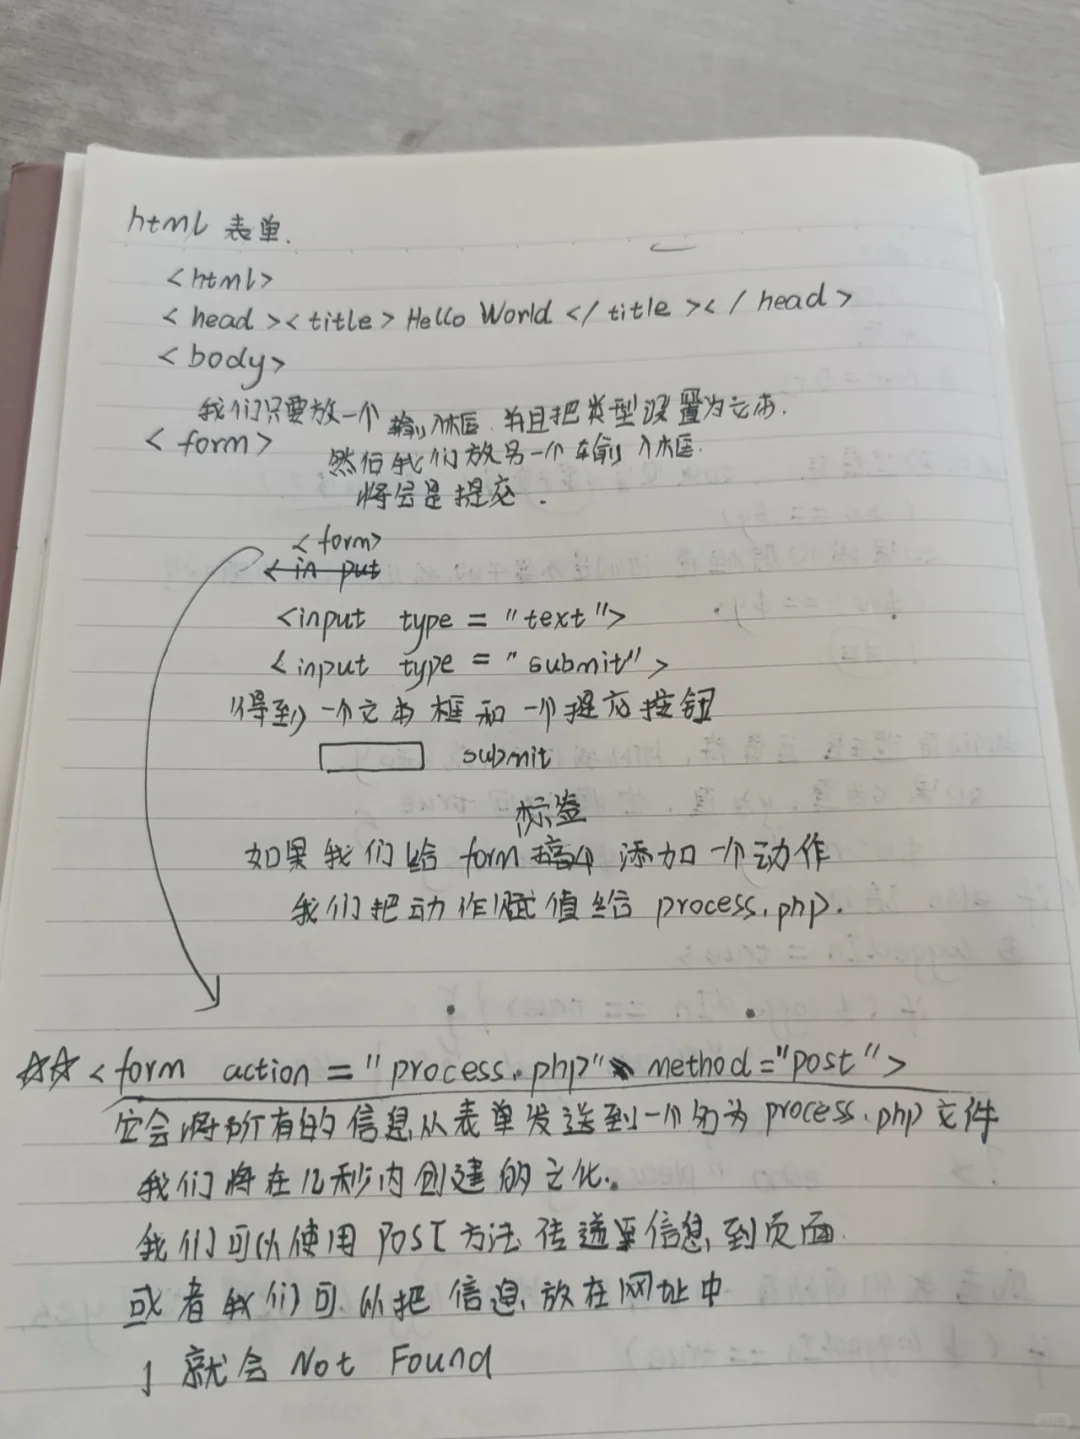 html 表单.
<html>
<head><title>Hello World</title></head>
<body>
我们只要放一个输入框.并且把类型设置为文本.
<form>
然后我们放另一个输入框.
将会是提交.
<form>
<input
<input type = "text">
<input type = "submit">
得到一个文本框和一个提交按钮
submit
标签
如果我们给 form 添加一个动作
我们把动作赋值给 process.php.
☆☆<form action = "process.php" method="post">
它会将所有的信息从表单发送到一个名为 process.php 文件
我们将在几秒内创建的文化.
我们可以使用 POST 方法传递信息到页面.
或者我们可以把信息放在网址中
就会 Not Found